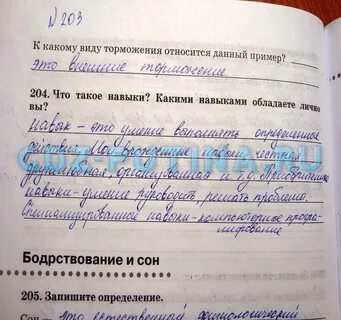 № 203
К какому виду торможения относится данный пример?
Это внешнее торможение.
204. Что такое навыки? Какими навыками обладаете лично
вы?
Навык - это умение выполнять определенное
действие. Мои врожденные навыки честная,
дружелюбная, организованная и т.д. Приобретенные
навыки - умение руководить, решать проблемы.
Специализированное навыки - компьютерное програ-
мирование
Бодрствование и сон
205. Запишите определение.
Сон - это естественный физиологический